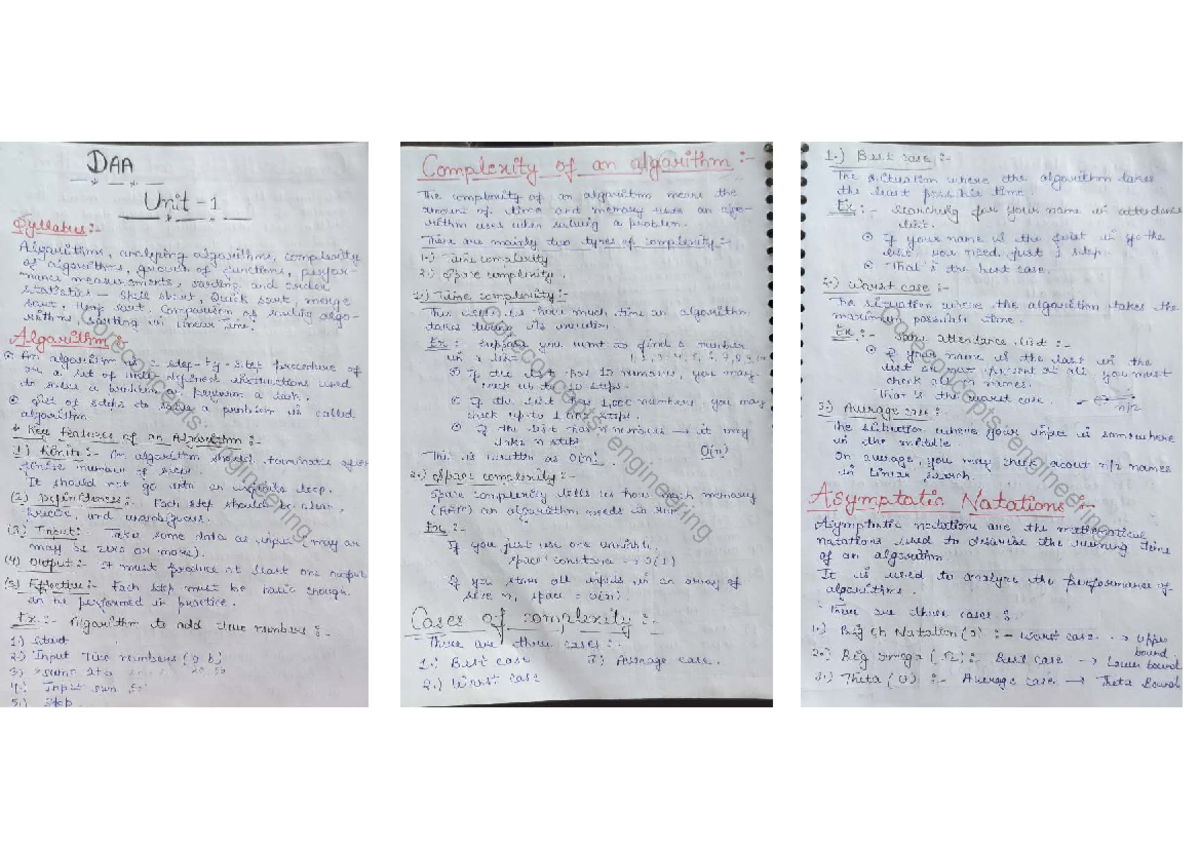 DAA
Unit - 1
Syllabus :-
Algorithms, analyzing algorithms, complexity
of algorithms, growth of functions, perfor-
mance measurements, sorting and order
Statistics - Shell short, Quick sort, merge
sort, Heap sort, Comparison of sorting algo-
rithms, sorting in linear time.
Algorithm :-
An algorithm is a step-by-step procedure or
or a set of well-defined instructions used
to solve a problem or perform a task.
Set of steps to solve a problem is called
algorithm
* Key features of an Algorithm :-
1) Finite :- An algorithm should terminate after
finite number of steps.
It should not go into an infinite loop.
(2) Definiteness :- Each step should be clear,
precise, and unambiguous.
(3) Input :- Take some data as input (may or
may be zero or more).
(4) Output :- It must produce at least one output
(5) Effective :- Each step must be basic enough
to be performed in practice.
Ex :- Algorithm to add two numbers :-
1.) Start
2.) Input Two numbers (a, b)
3)
4.)
5.) Stop
Complexity of an algorithm :-
The complexity of an algorithm means the
amount of time and memory uses an algo-
rithm uses when solving a problem.
There are mainly two types of complexity :-
1.) Time complexity
2.) Space complexity.
1.) Time complexity :-
This is how much time an algorithm
takes during its execution
Ex :- Suppose you want to find a number
in a list 1, 2, 3, 4, 5, 6, 7, 8, 9, 10
If the list has 10 numbers, you may
check up to 10 steps.
If the list has 1,000 numbers, you may
check up to 1,000 steps.
If the list has n numbers → it may
take n steps
This is written as O(n). O(n)
2.) Space complexity :-
Space complexity tells us how much memory
(RAM) an algorithm needs to run
Ex :-
If you just use one variable,
space constant = O(1)
If you store all inputs in an array of
size n, space = O(n).
Cases of complexity :-
There are three cases :-
1.) Best case 3) Average case.
2.) Worst case
1.) Best case :-
The situation where the algorithm takes
the least possible time.
Ex :- Searching for your name in attendance
list.
If your name is the first in the
list you need just 1 step.
That's the best case.
2.) Worst case :-
The situation where the algorithm takes the
maximum possible time.
Ex :- Same attendance list :-
If your name is the last in the
list or not present at all you must
check all n names.
That is the worst case. n/2
3) Average case :-
The situation where your input is somewhere
in the middle
On average, you may check about n/2 names
in linear search.
Asymptatic Natations :-
Asymptotic notations are the mathematical
notations used to describe the running time
of an algorithm.
It is used to analyze the performance of
algorithms.
There are three cases :
1.) Big oh Notation (O) :- Worst case → Upper
bound
2.) Big omega (Ω) :- Best case → Lower bound
3.) Theta (θ) :- Average case → Theta Bound